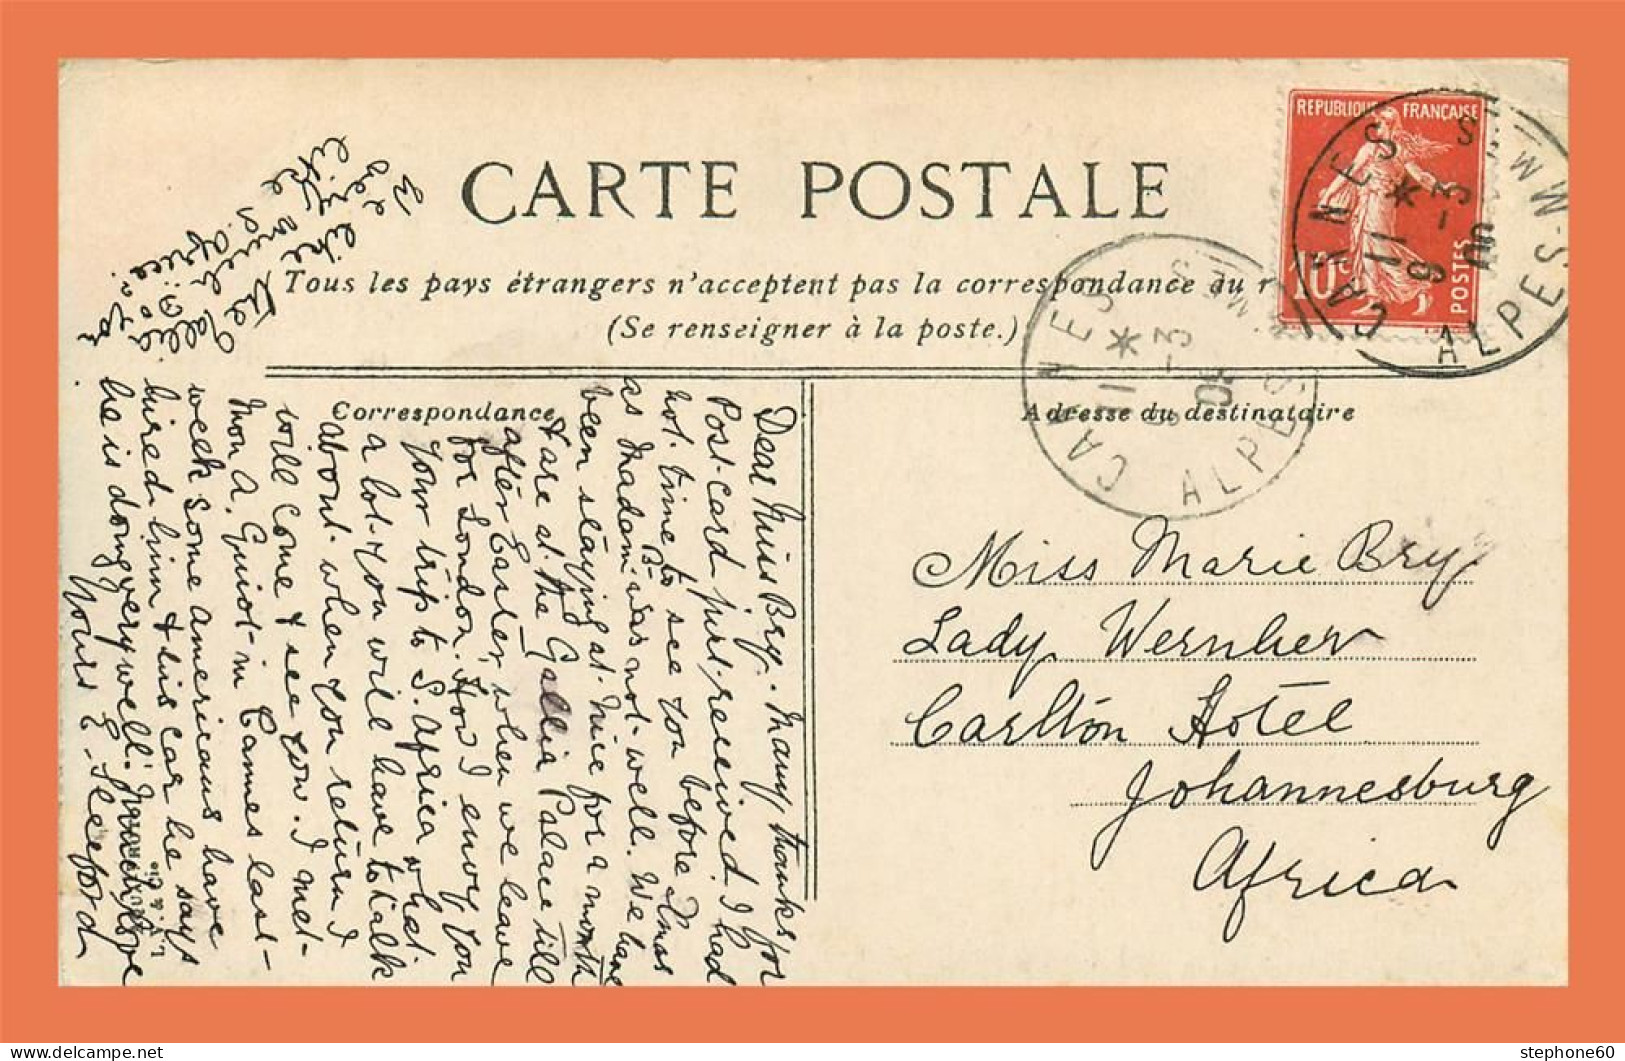 CARTE POSTALE
Tous les pays étrangers n'acceptent pas la correspondance au r
(Se renseigner à la poste.)
REPUBLIQUE FRANÇAISE
10c
POSTES
CANNES
11 * 9-3
ALPES-MMES
CANNES
11 * 9-3
ALPES MMES
Correspondance
Adresse du destinataire
Miss Marie Bry
Lady Wernher
Carlton Hotel
Johannesburg
Africa
Dear Miss Bry. Many thanks for
Post-card just received I had
not time to see you before Xmas
as Madam B was not well. We have
been staying at Nice for a month
& are at the Gallia Palace till
after Easter, when we leave
for London. How I envy you
your trip to S. Africa what
a lot you will have to talk
about when you return I
will come & see you. I met
Mon A. Guiot in Cannes last
week some Americans have
hired him & his car he says
he is doing very well.
Yours E. Sleeford
We
like the Gallia
very much
S. Africa
stephone60